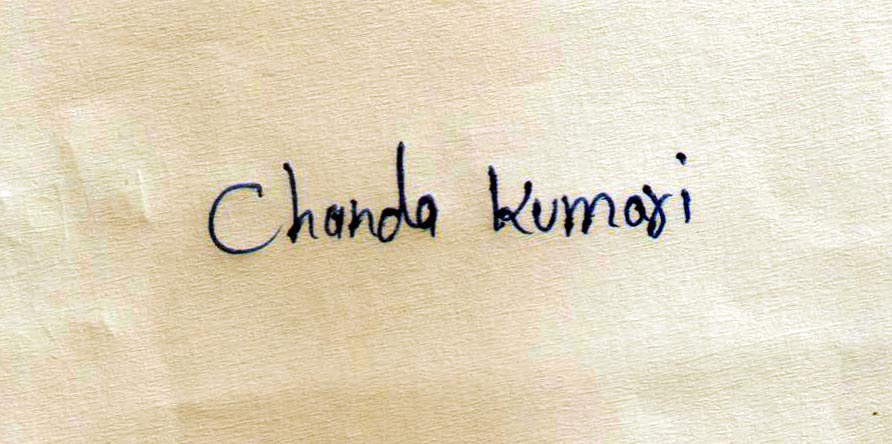 Chanda Kumari